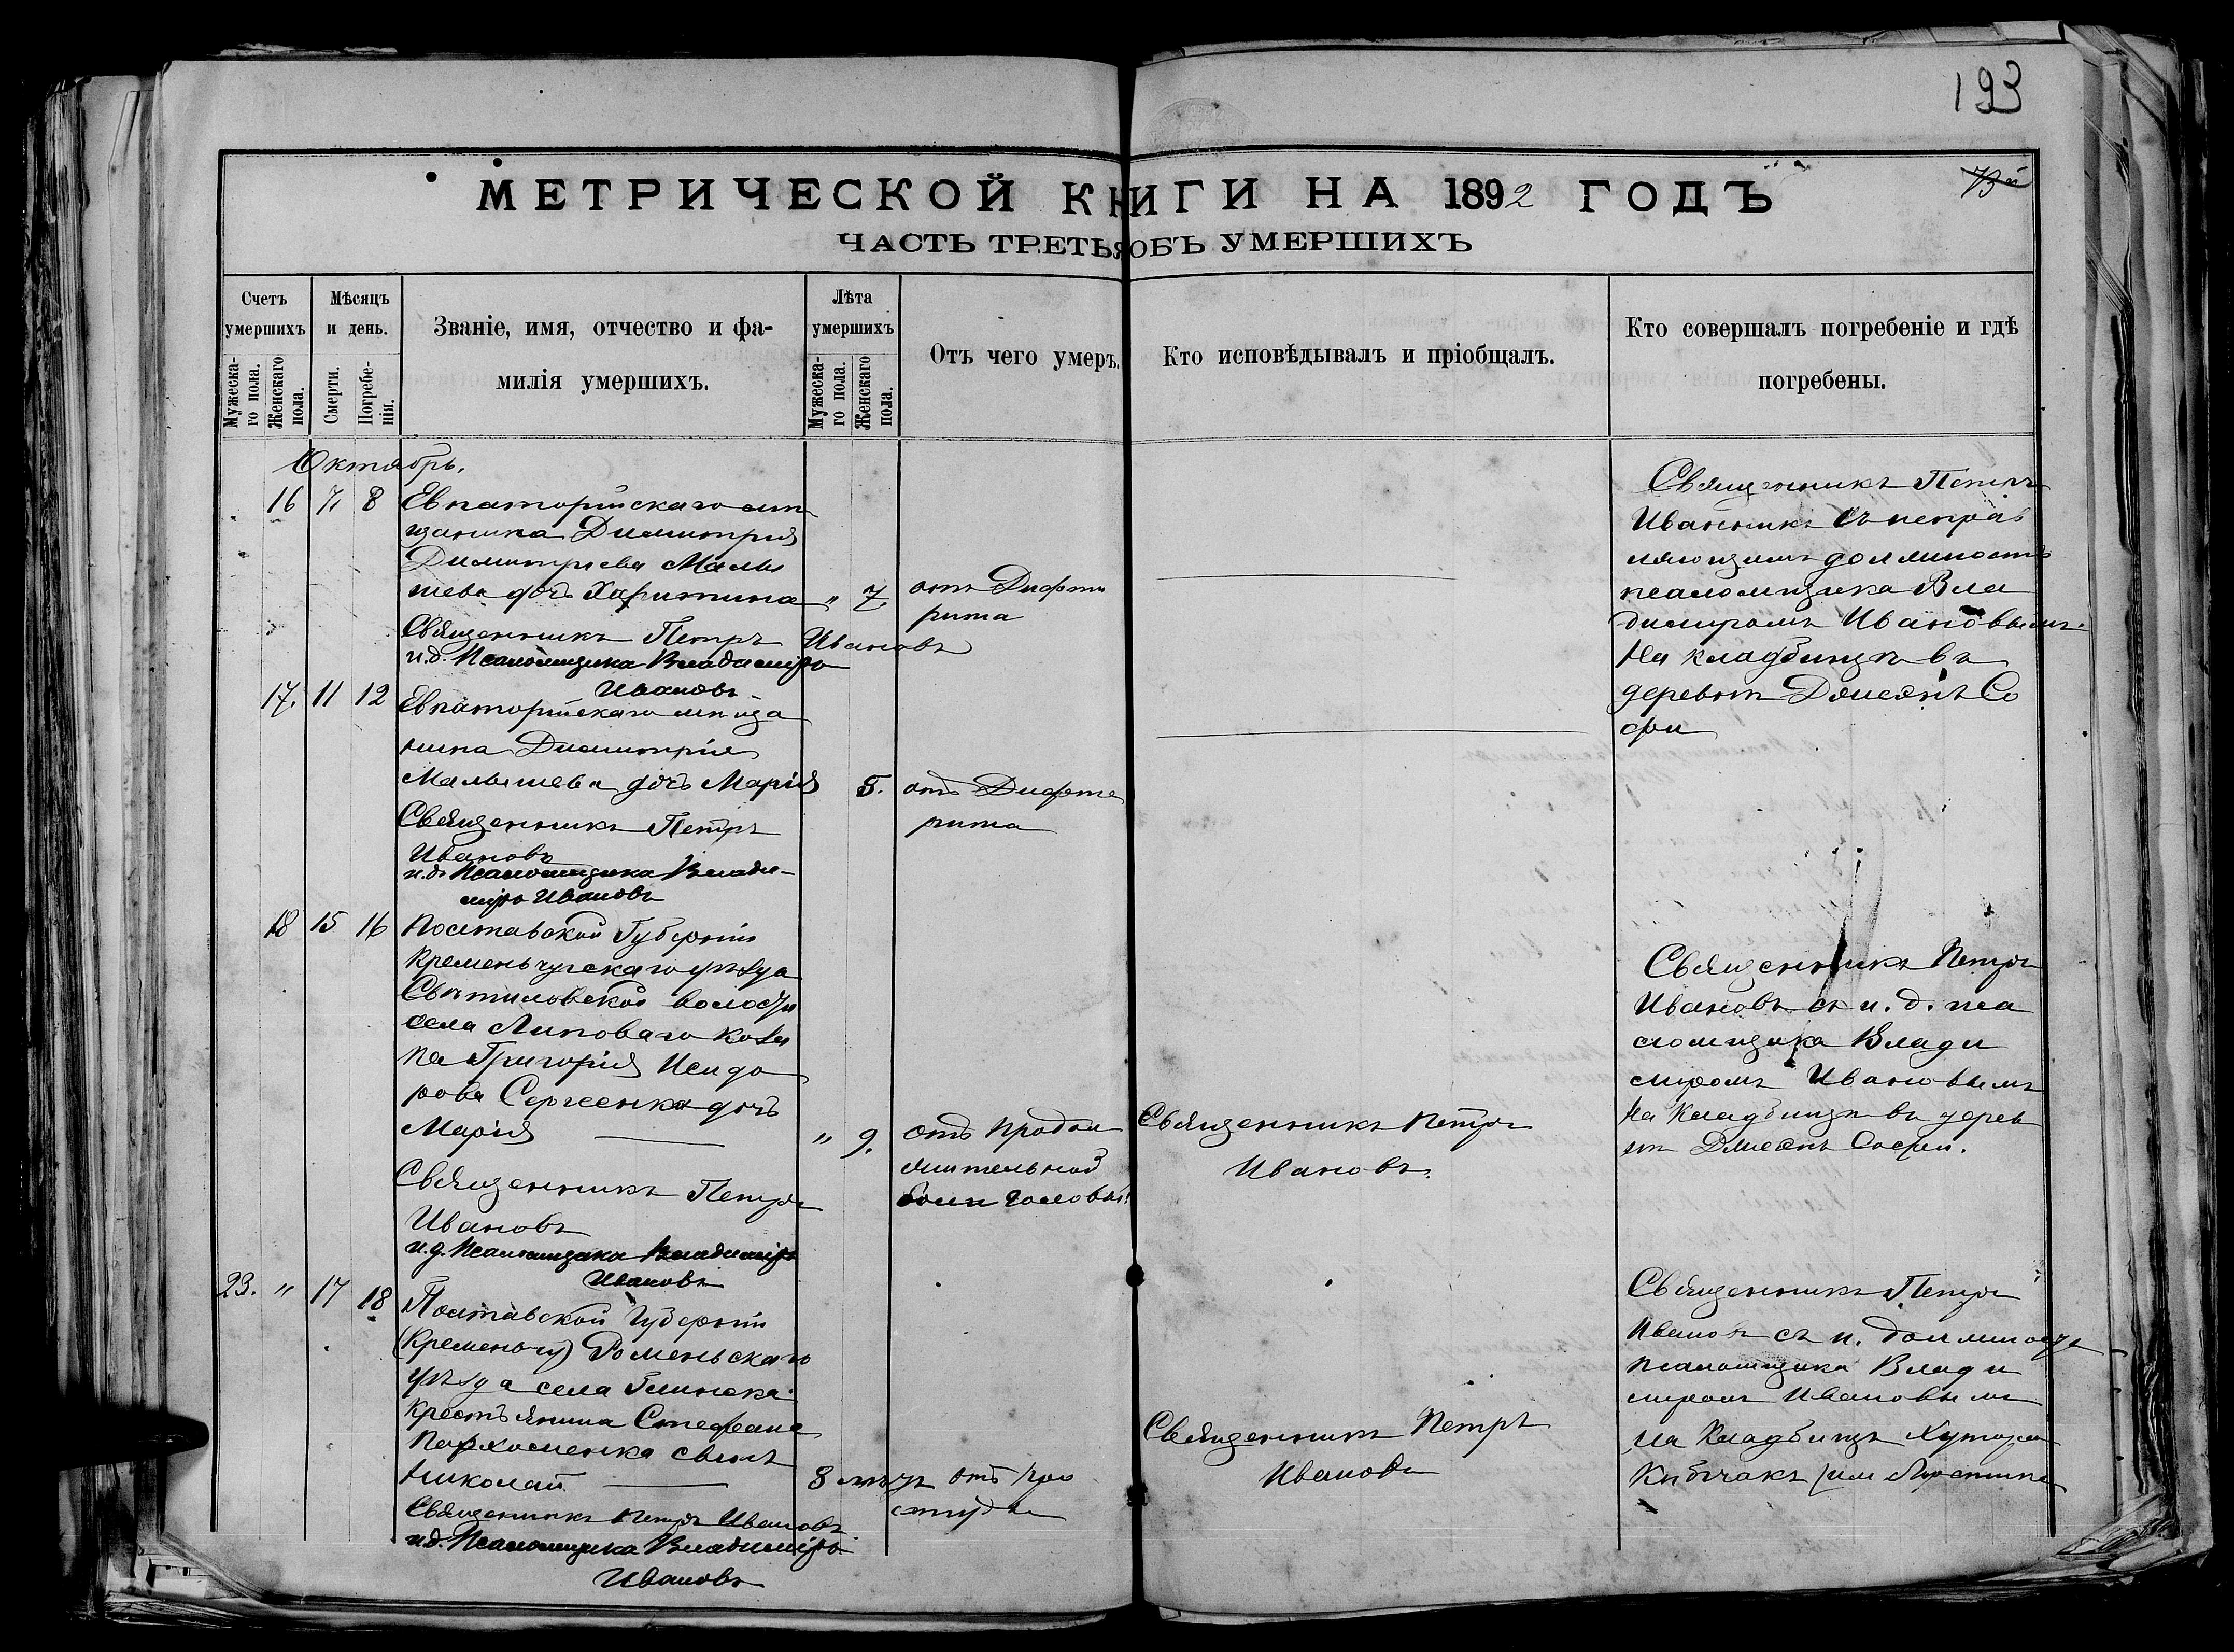 193
73й
МЕТРИЧЕСКОЙ КНИГИ НА 1892 ГОДЪ
ЧАСТЬ ТРЕТЬЯ ОБЪ УМЕРШИХЪ
Счетъ умершихъ
Мужеска-го пола.
Женскаго пола.
Мѣсяцъ и день.
Смерти.
Погребе-нія.
Званіе, имя, отчество и фа-
милія умершихъ.
Лѣта умершихъ
Мужеска-го пола.
Женскаго пола.
Отъ чего умеръ.
Кто исповѣдывалъ и пріобщалъ.
Кто совершалъ погребеніе и гдѣ
погребены.
Октябрь.
16 7 8 Евпаторійскаго мѣ
щанина Димитрія
Димитріева Малы
шева дочь Харитина " 7
Священникъ Петръ Ивановъ
и.д. Псаломщика Владиміръ
Ивановъ
отъ Дифте
рита
Священникъ Петръ
Ивановъ съ исправ
ляющимъ должность
псаломщика Вла
димиромъ Ивановымъ.
На кладбищѣ въ
деревнѣ Со
фіи
17. 11 12 Евпаторійскаго мѣща
нина Димитрія
Малышева дочь Марія 5.
Священникъ Петръ
Ивановъ
и.д. Псаломщика Влади-
міръ Ивановъ
отъ Дифте
рита
18 15 16 Полтавской Губерніи
Кременчугскаго уѣзда
волости
села Липоваго коза
ка Григорія Исидо
рова Сергеенка дочь
Марія " 9.
Священникъ Петръ
Ивановъ
и.д. Псаломщика Владиміръ
Ивановъ
отъ продол
жительной
боли головы
Священникъ Петръ
Ивановъ.
Священникъ Петръ
Ивановъ съ и. д. пса
ломщика Влади
миромъ Ивановымъ
на кладбищѣ въ дерев
нѣ Софіи.
23. " 17 18 Полтавской Губерніи
(Кременчу) Роменьскаго
уѣзда села Глинска
крестьянина Стефана
Пархоменка сынъ
Николай 8 мѣц.
Священникъ Петръ Ивановъ
и.д. Псаломщика Владиміръ
Ивановъ
отъ про
студы
Священникъ Петръ
Ивановъ
Священникъ Петръ
Ивановъ съ и. должность
псаломщика Влади
миромъ Ивановымъ
на кладбищѣ Хутора
Кипчакъ